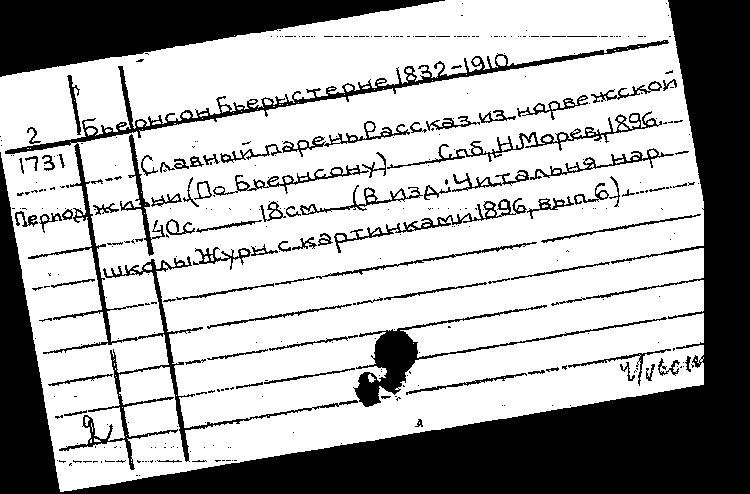 Бьернсон, Бьернстерне, 1832-1910.
2
1731
Славный парень. Рассказ из норвежской
Период жизни. (По Бьернсону). Спб., Н. Морев, 1896.
40с. 18см. (В изд.: Читальня нар.
школы. Журн. с картинками. 1896, вып. 6).
2